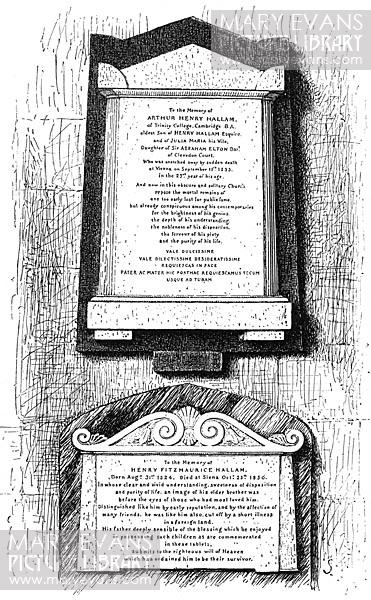 MARY EVANS
PICTURE LIBRARY
To the Memory of
ARTHUR HENRY HALLAM,
of Trinity College, Cambridge B.A.
eldest Son of HENRY HALLAM Esquire
and of JULIA MARIA his Wife,
Daughter of Sir ABRAHAM ELTON Bart.
of Clevedon Court,
Who was snatched away by sudden death
at Vienna on September 15th 1833.
in the 23rd year of his age.
And now in this obscure and solitary Church
repose the mortal remains of
one too early lost for public fame.
but already conspicuous among his contemporaries
for the brightness of his genius.
the depth of his understanding.
the nobleness of his disposition.
the fervour of his piety
and the purity of his life.
VALE DULCISSIME
VALE DILECTISSIME DESIDERATISSIME
REQUIESCAS IN PACE
PATER AC MATER HIC POSTHAC REQUIESCAMUS TECUM
USQUE AD TUBAM
To the Memory of
HENRY FITZMAURICE HALLAM,
Born Augt. 31st 1824, Died at Siena Octr. 25th 1850.
In whose clear and vivid understanding, sweetness of disposition
and purity of life, an image of his elder brother was
before the eyes of those who had most loved him.
Distinguished like him by early reputation, and by the affection of
many friends, he was like him also, cut off by a short illness
in a foreign land.
His father deeply sensible of the blessing which he enjoyed
in possessing such children as are commemorated
in these tablets,
submits to the righteous will of Heaven
which has ordained him to be their survivor.
MARY EVANS
PICTURE LIBRARY
www.maryevans.com